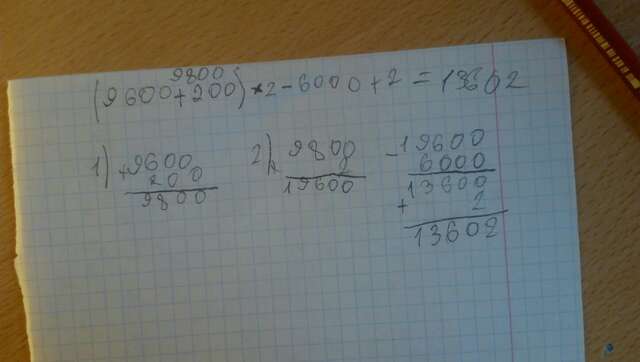 9800
(9600+200)*2-6000+2=13602
1) +9600
200
9800
2) x 9800
2
19600
-19600
6000
13600
+ 2
13602